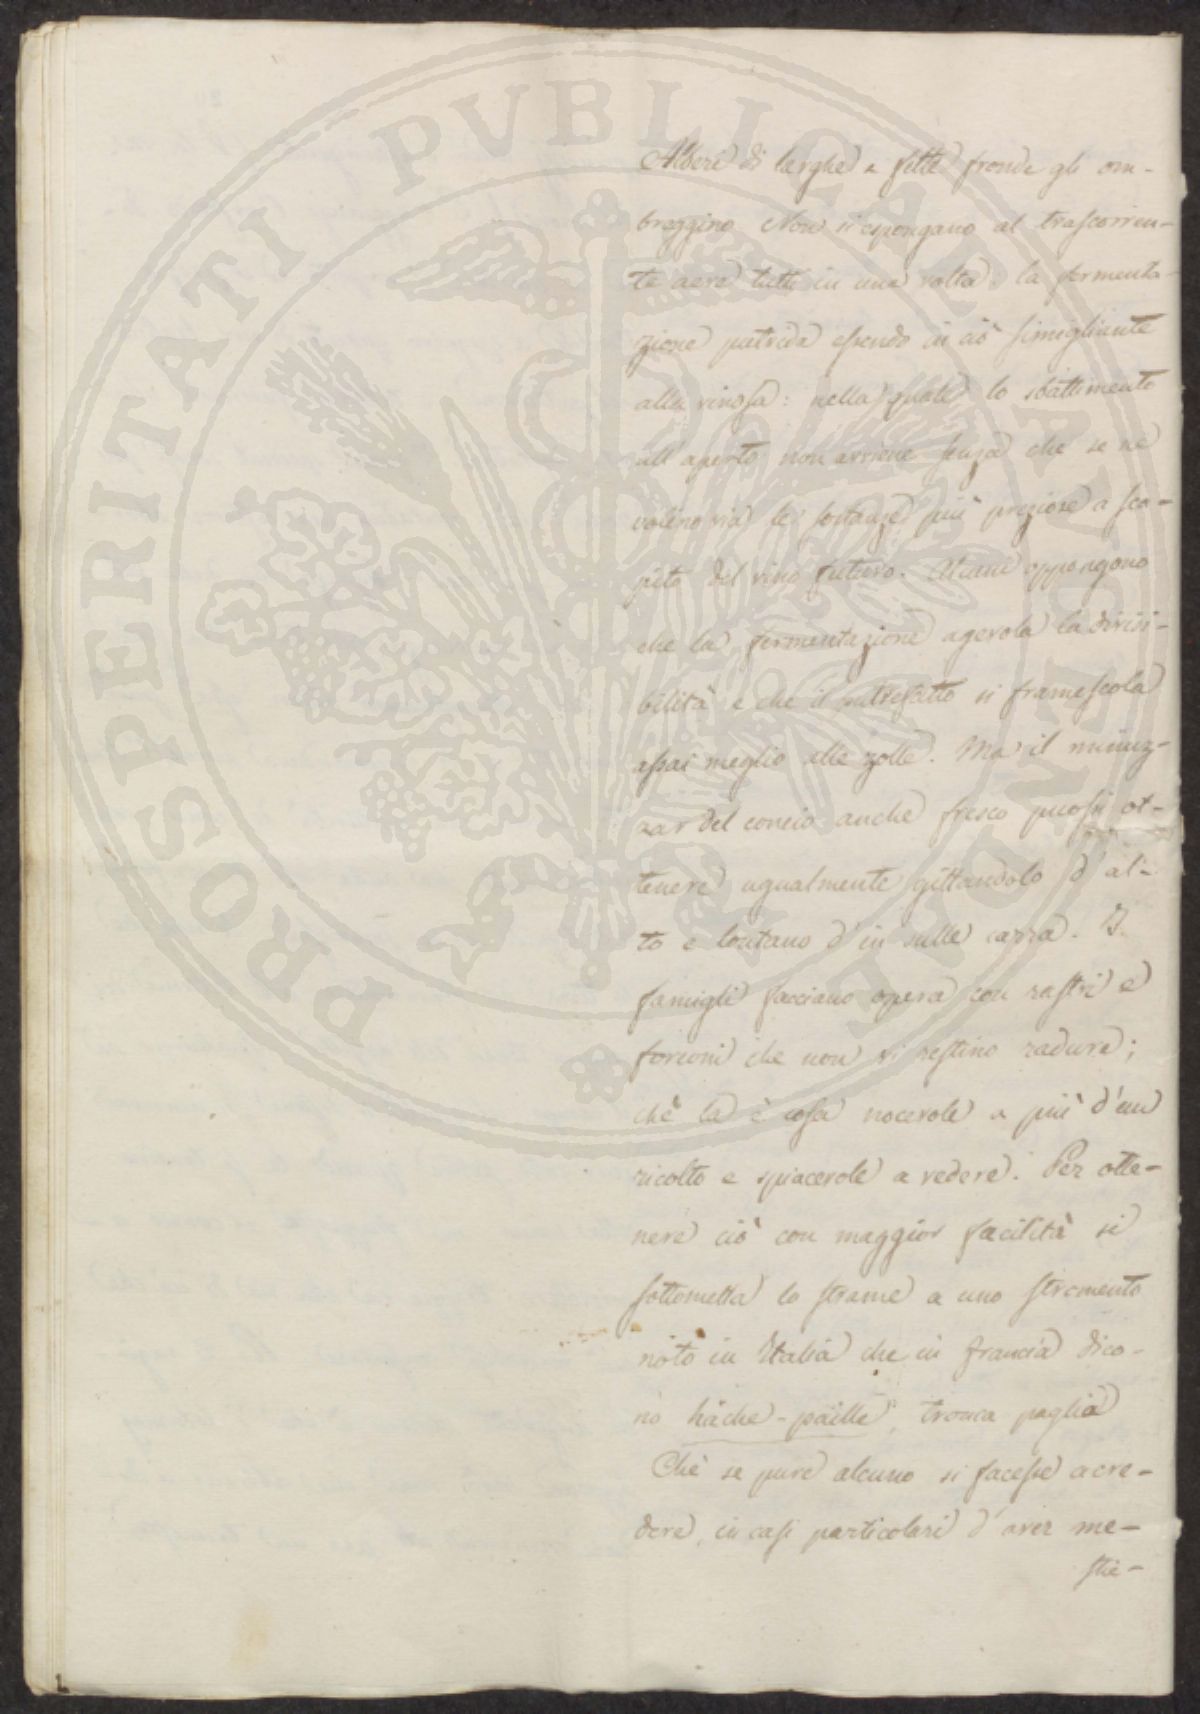 PROSPERITATI PVBLICAE AVGENDAE
Alberi di larghe e fitte fronde gli om-
breggino. Non si espongano al trascorren-
te aere tutti in una volta: la fermenta-
zione putrida essendo in ciò simigliante
alla vinosa: nella quale lo sbattimento
all'aperto non avviene senza che se ne
volino via le sostanze più preziose a sca-
pito del vino futuro. Alcuni oppongono
che la fermentazione agevola la divisi-
bilità e che il putrefatto si framescola
assai meglio alle zolle. Ma il minuz-
zar del concio anche fresco puossi ot-
tenere ugualmente gittandolo d'al-
to e lontano d'in sulle carra. I
famigli facciano opera con rastri e
forconi che non vi restino radure;
chè la è cosa nocevole a più d'un
ricolto e spiacevole a vedere. Per otte-
nere ciò con maggior facilità si
sottometta lo strame a uno stromento
noto in Italia che in Francia dico-
no hâche-paille, tronca paglia
Chè se pure alcuno si facesse a cre-
dere, in casi particolari d'aver me-
stie-